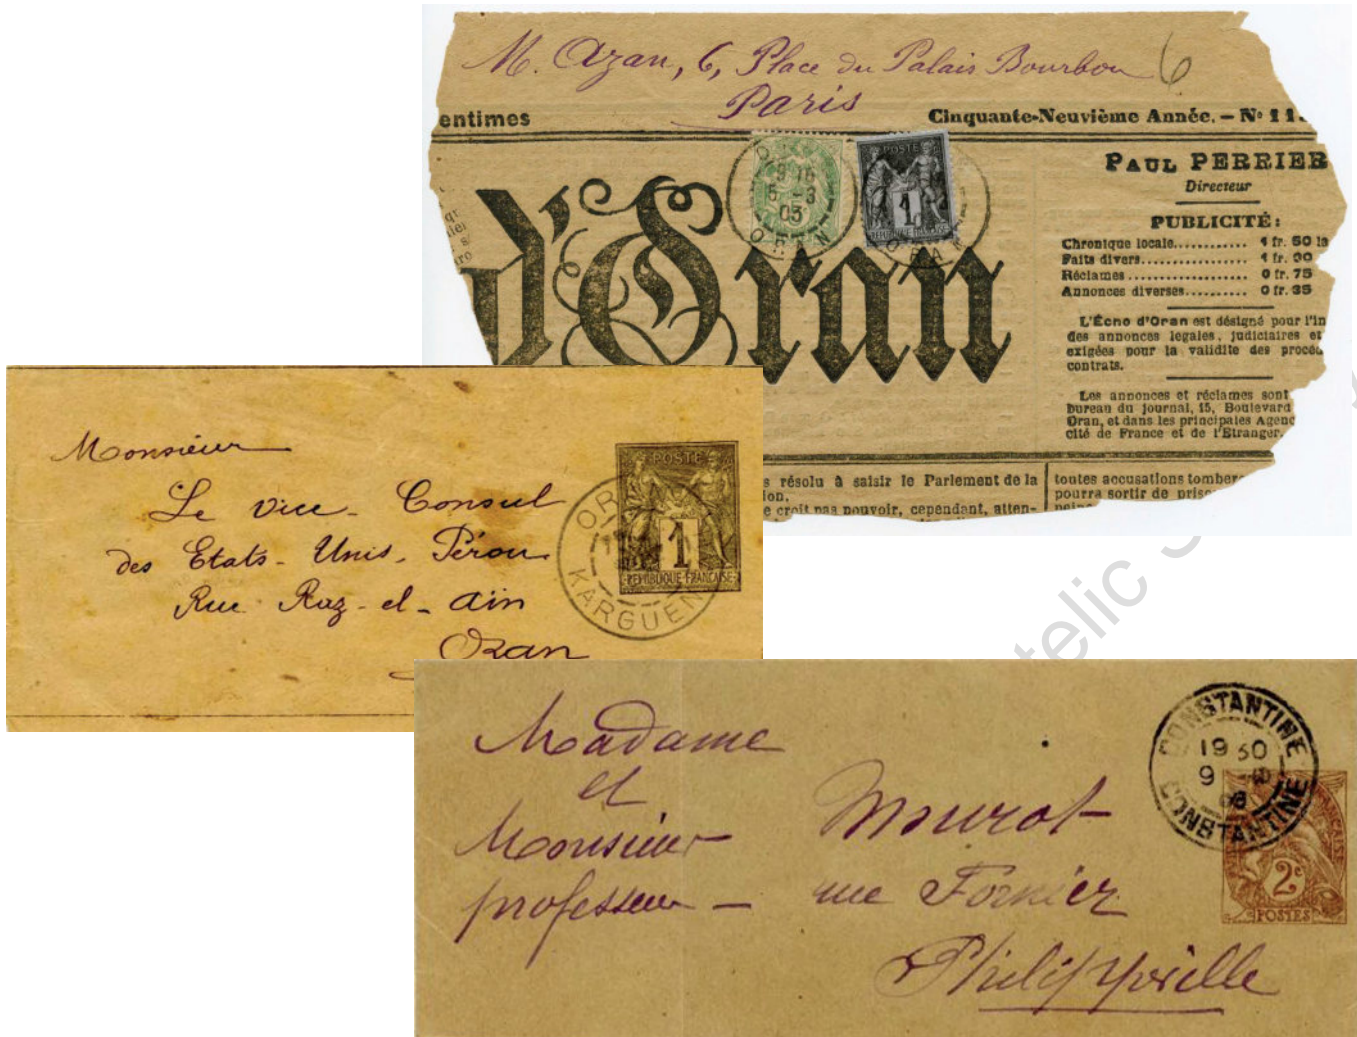 M. Azan, 6, Place du Palais Bourbon 6
Paris
entimes
Cinquante-Neuvième Année. – N° 11
PAUL PERRIER
Directeur
PUBLICITÉ:
Chronique locale............ 1 fr. 50 la
Faits divers................. 1 fr. 00
Réclames.................. 0 fr. 75
Annonces diverses......... 0 fr. 35
L'Écho d'Oran est désigné pour l'in
des annonces légales, judiciaires et
exigées pour la validite des procéd
contrats.
Les annonces et réclames sont
bureau du journal, 15, Boulevard
Oran, et dans les principales Agenc
cité de France et de l'Étranger.
d'Oran
9 15
5 -3
03
ORAN
POSTE
1
REPUBLIQUE FRANÇAISE
ORAN
s résolu à saisir le Parlement de la
ion.
e croit pas pouvoir, cependant, atten-
toutes accusations tomber
pourra sortir de priso
Monsieur
Le vice-Consul
des Etats-Unis-Pérou
Rue Raz-el-Aïn
Oran
POSTE
1
REPUBLIQUE FRANÇAISE
OR
KARGUEN
Madame
et
Monsieur Mourot
professeur – rue Fornier
Philippeville
CONSTANTINE
19 30
9
CONSTANTINE
2c
POSTES
telic S